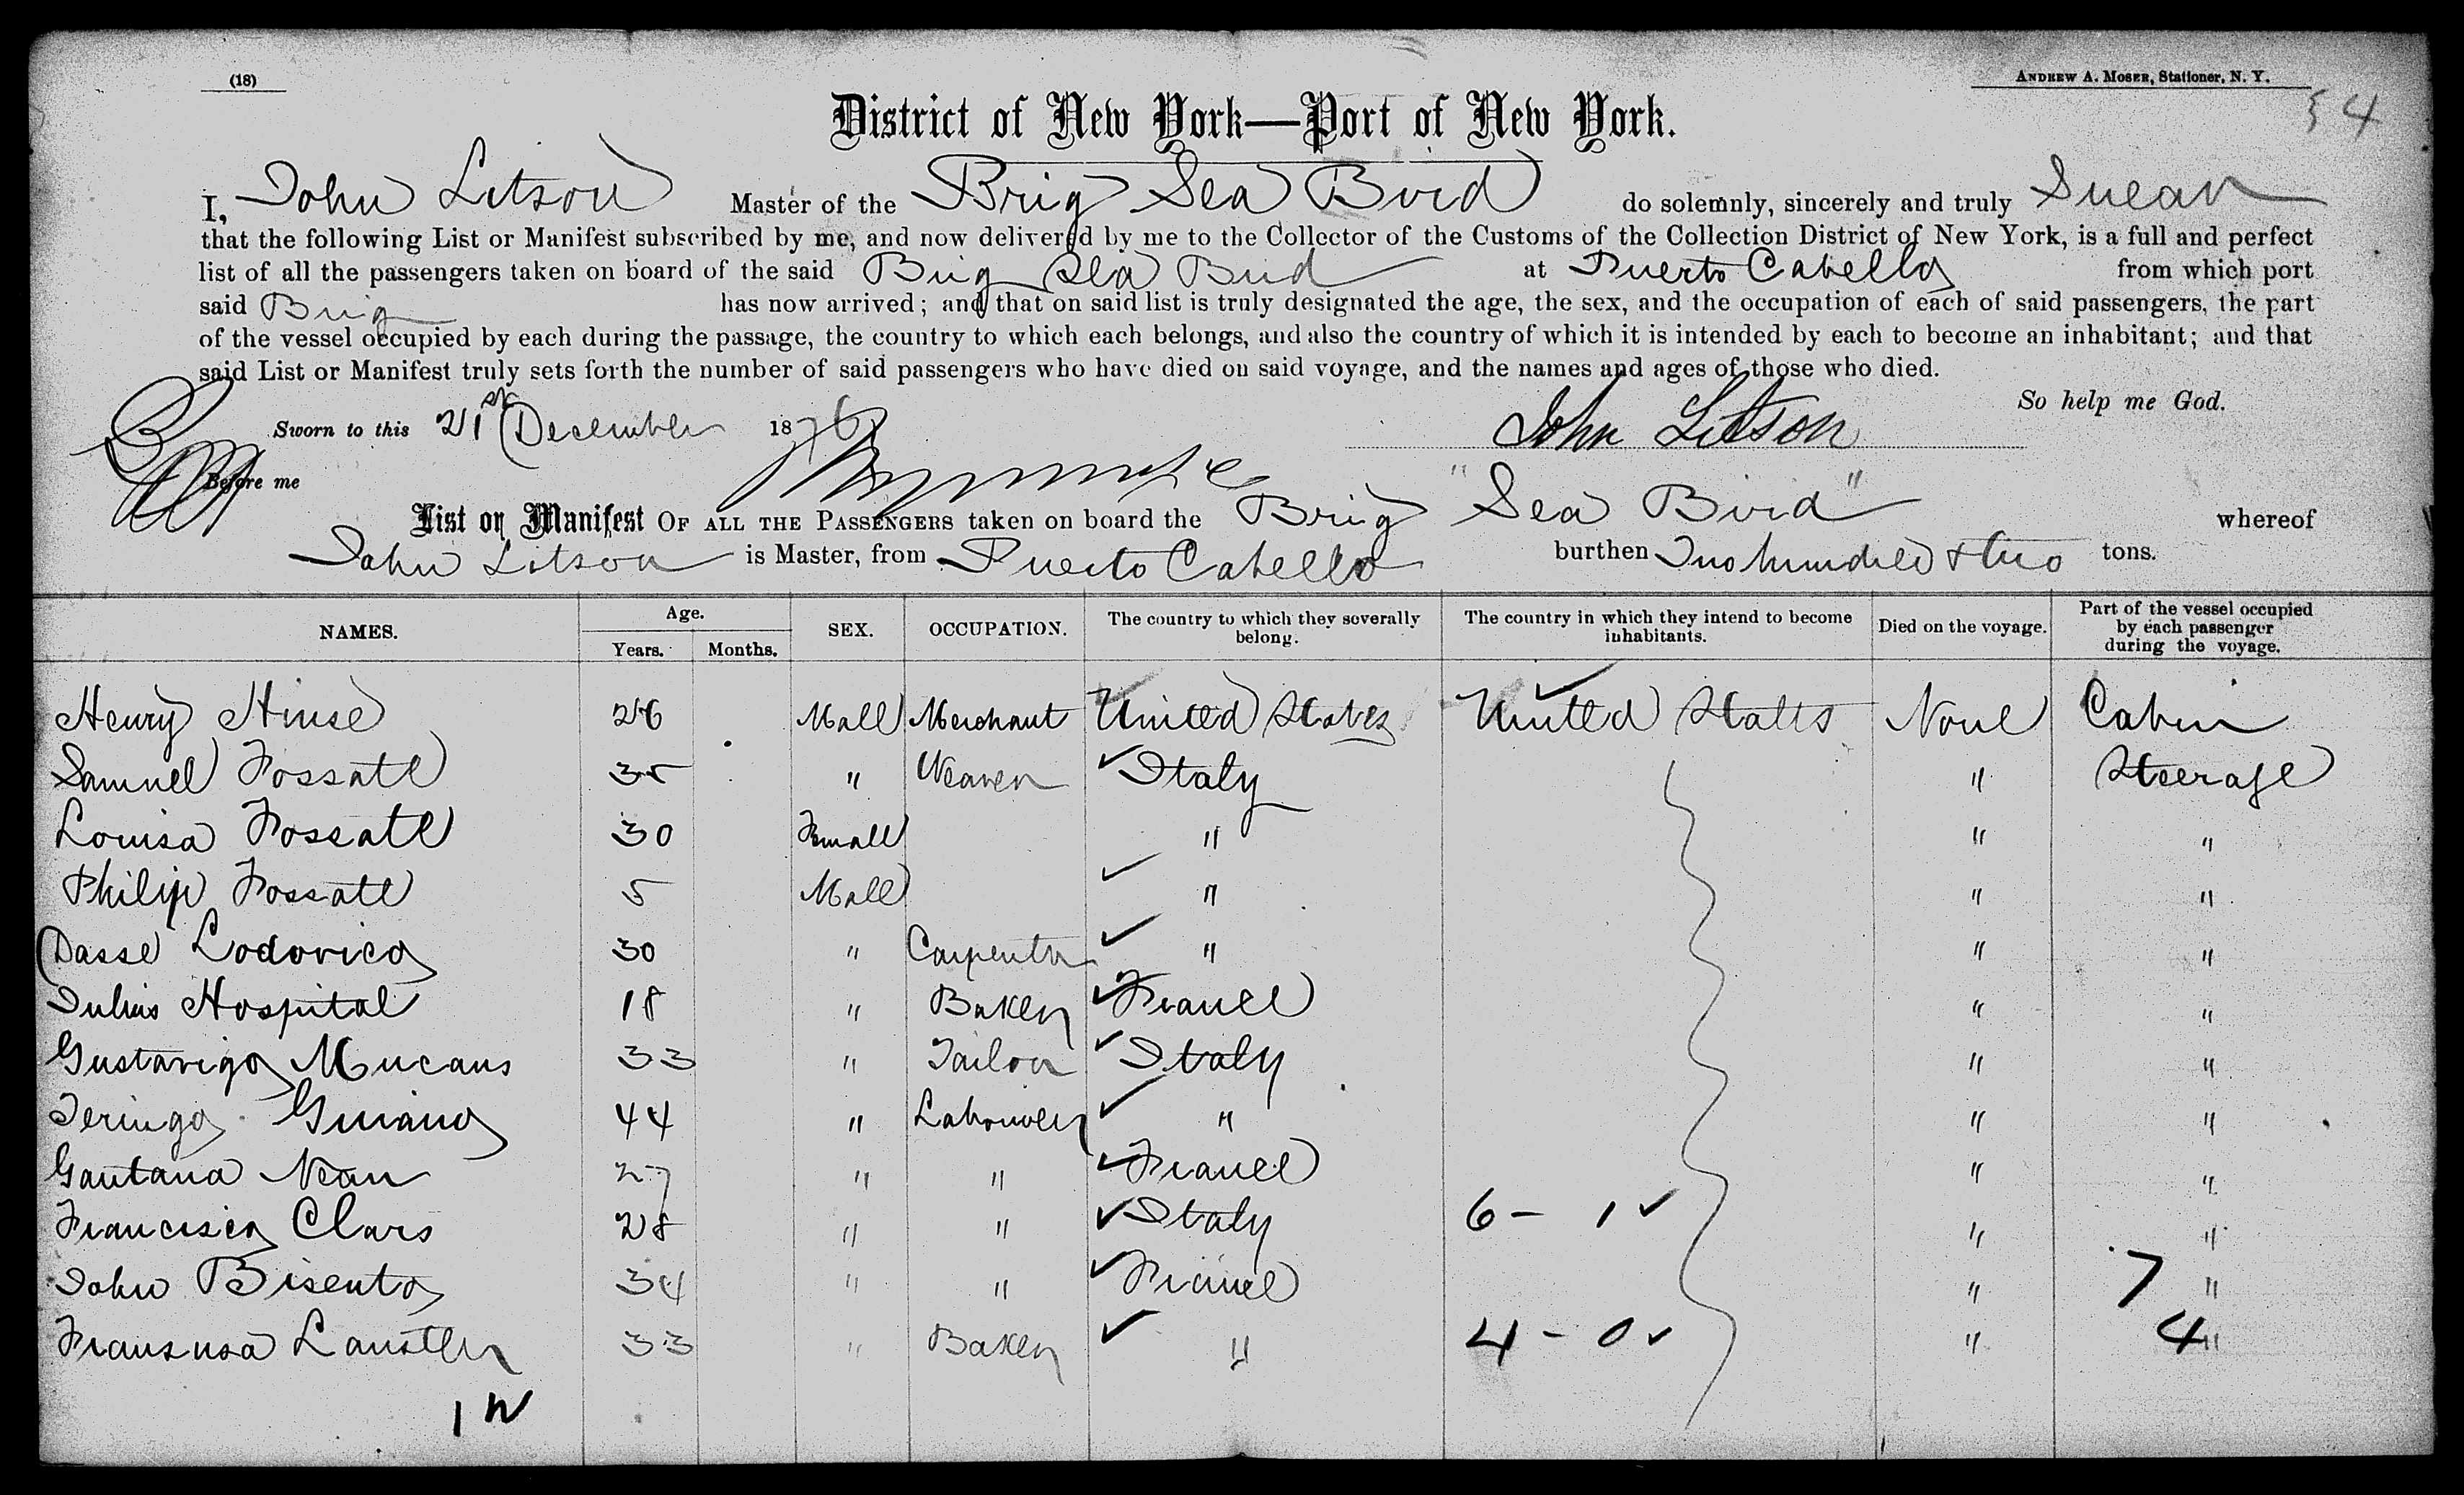 (18)
ANDREW A. MOSER, Stationer, N. Y.
54
District of New York—Port of New York.
I, John Litson Master of the Brig Sea Bird do solemnly, sincerely and truly Swear
that the following List or Manifest subscribed by me, and now delivered by me to the Collector of the Customs of the Collection District of New York, is a full and perfect
list of all the passengers taken on board of the said Brig Sea Bird at Puerto Cabello from which port
said Brig has now arrived; and that on said list is truly designated the age, the sex, and the occupation of each of said passengers, the part
of the vessel occupied by each during the passage, the country to which each belongs, and also the country of which it is intended by each to become an inhabitant; and that
said List or Manifest truly sets forth the number of said passengers who have died on said voyage, and the names and ages of those who died.
So help me God.
Sworn to this 21st December 1876 John Litson
Before me
List or Manifest OF ALL THE PASSENGERS taken on board the Brig "Sea Bird" whereof
John Litson is Master, from Puerto Cabello burthen Two hundred & two tons.
NAMES. Age. Years. Months. SEX. OCCUPATION. The country to which they severally belong. The country in which they intend to become inhabitants. Died on the voyage. Part of the vessel occupied by each passenger during the voyage.
Henry Hinse 26 Male Merchant United States United States None Cabin
Samuel Fossate 35 " Weaver Italy " Steerage
Louisa Fossate 30 Femall " " "
Philip Fossate 5 Male " " "
Dasse Lodovico 30 " Carpenter " " "
Julius Hospital 18 " Baker France " "
Gustavigo Mucans 33 " Tailor Italy " "
Teringo 44 " Labourer " " "
Gantana Nean 27 " " France " "
Francisco Clars 28 " " Italy 6 - 1 " "
John Bisento 34 " " France " 7 "
Lanstler 33 " Baker " 4 - 0 " 4 "
1 W